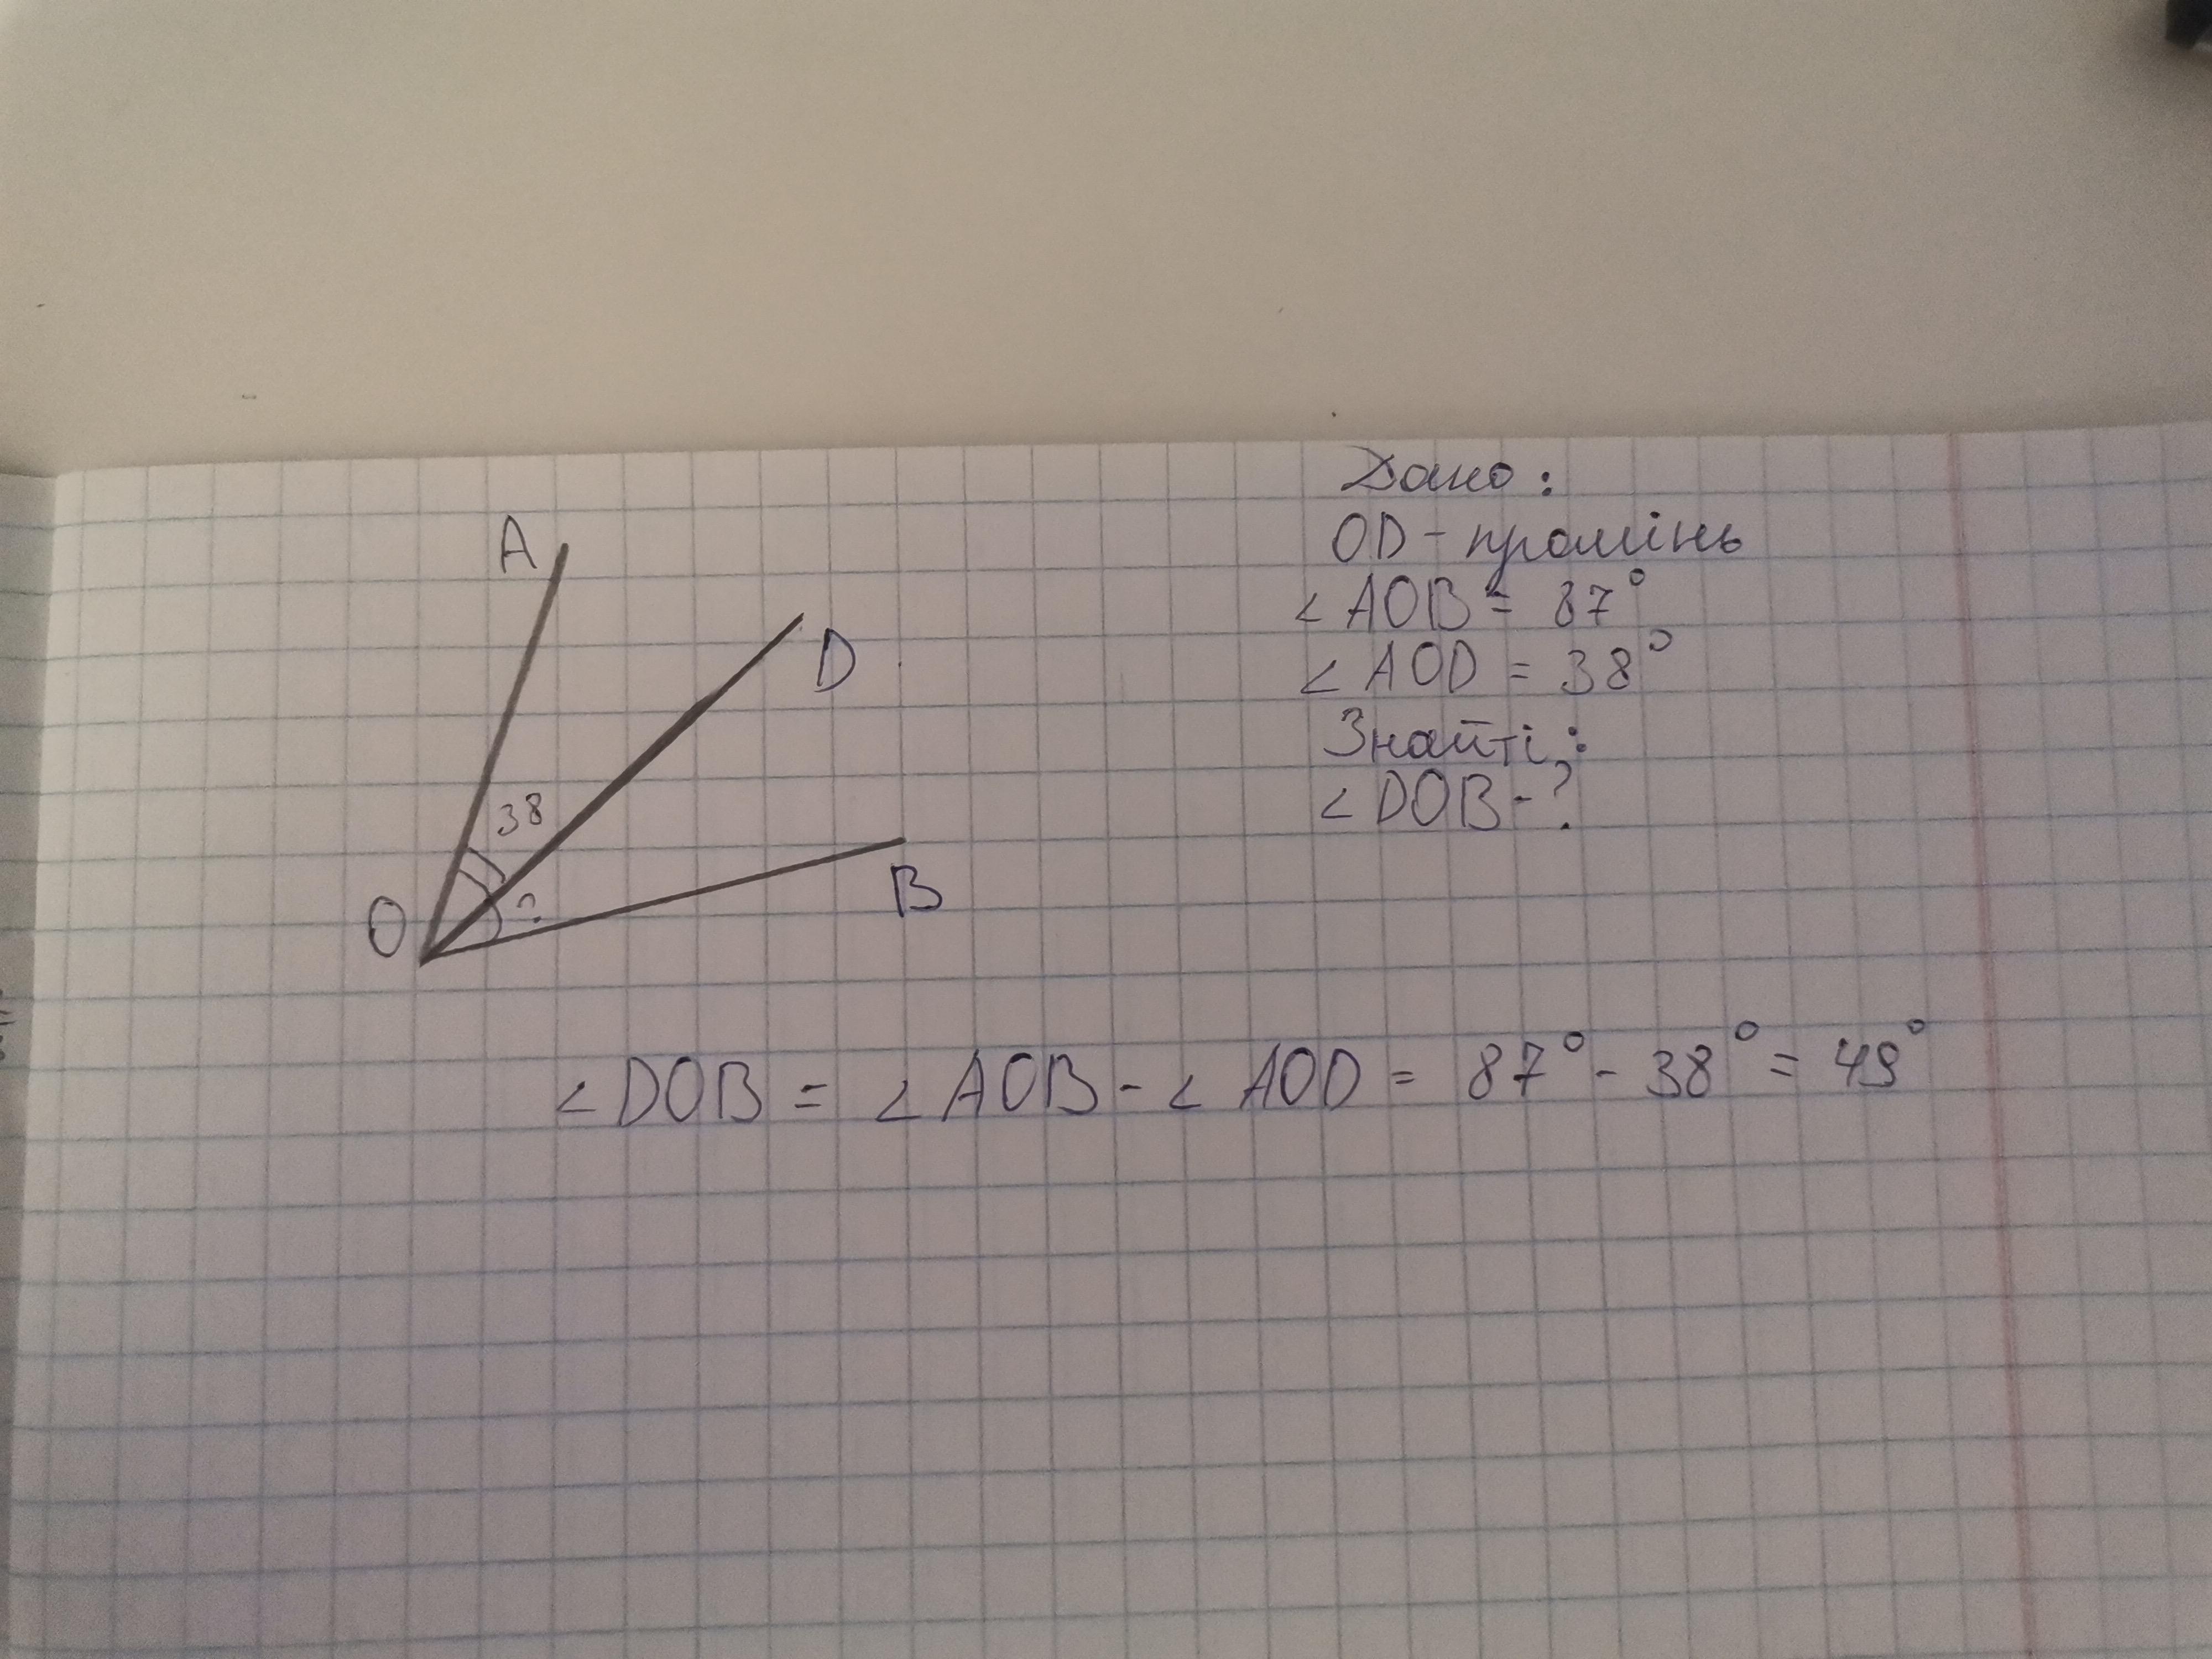 A
D
38
O
?
B
Дано:
OD - промінь
∠ AOB = 87°
∠ AOD = 38°
Знайті:
∠ DOB - ?
∠ DOB = ∠ AOB - ∠ AOD = 87° - 38° = 49°